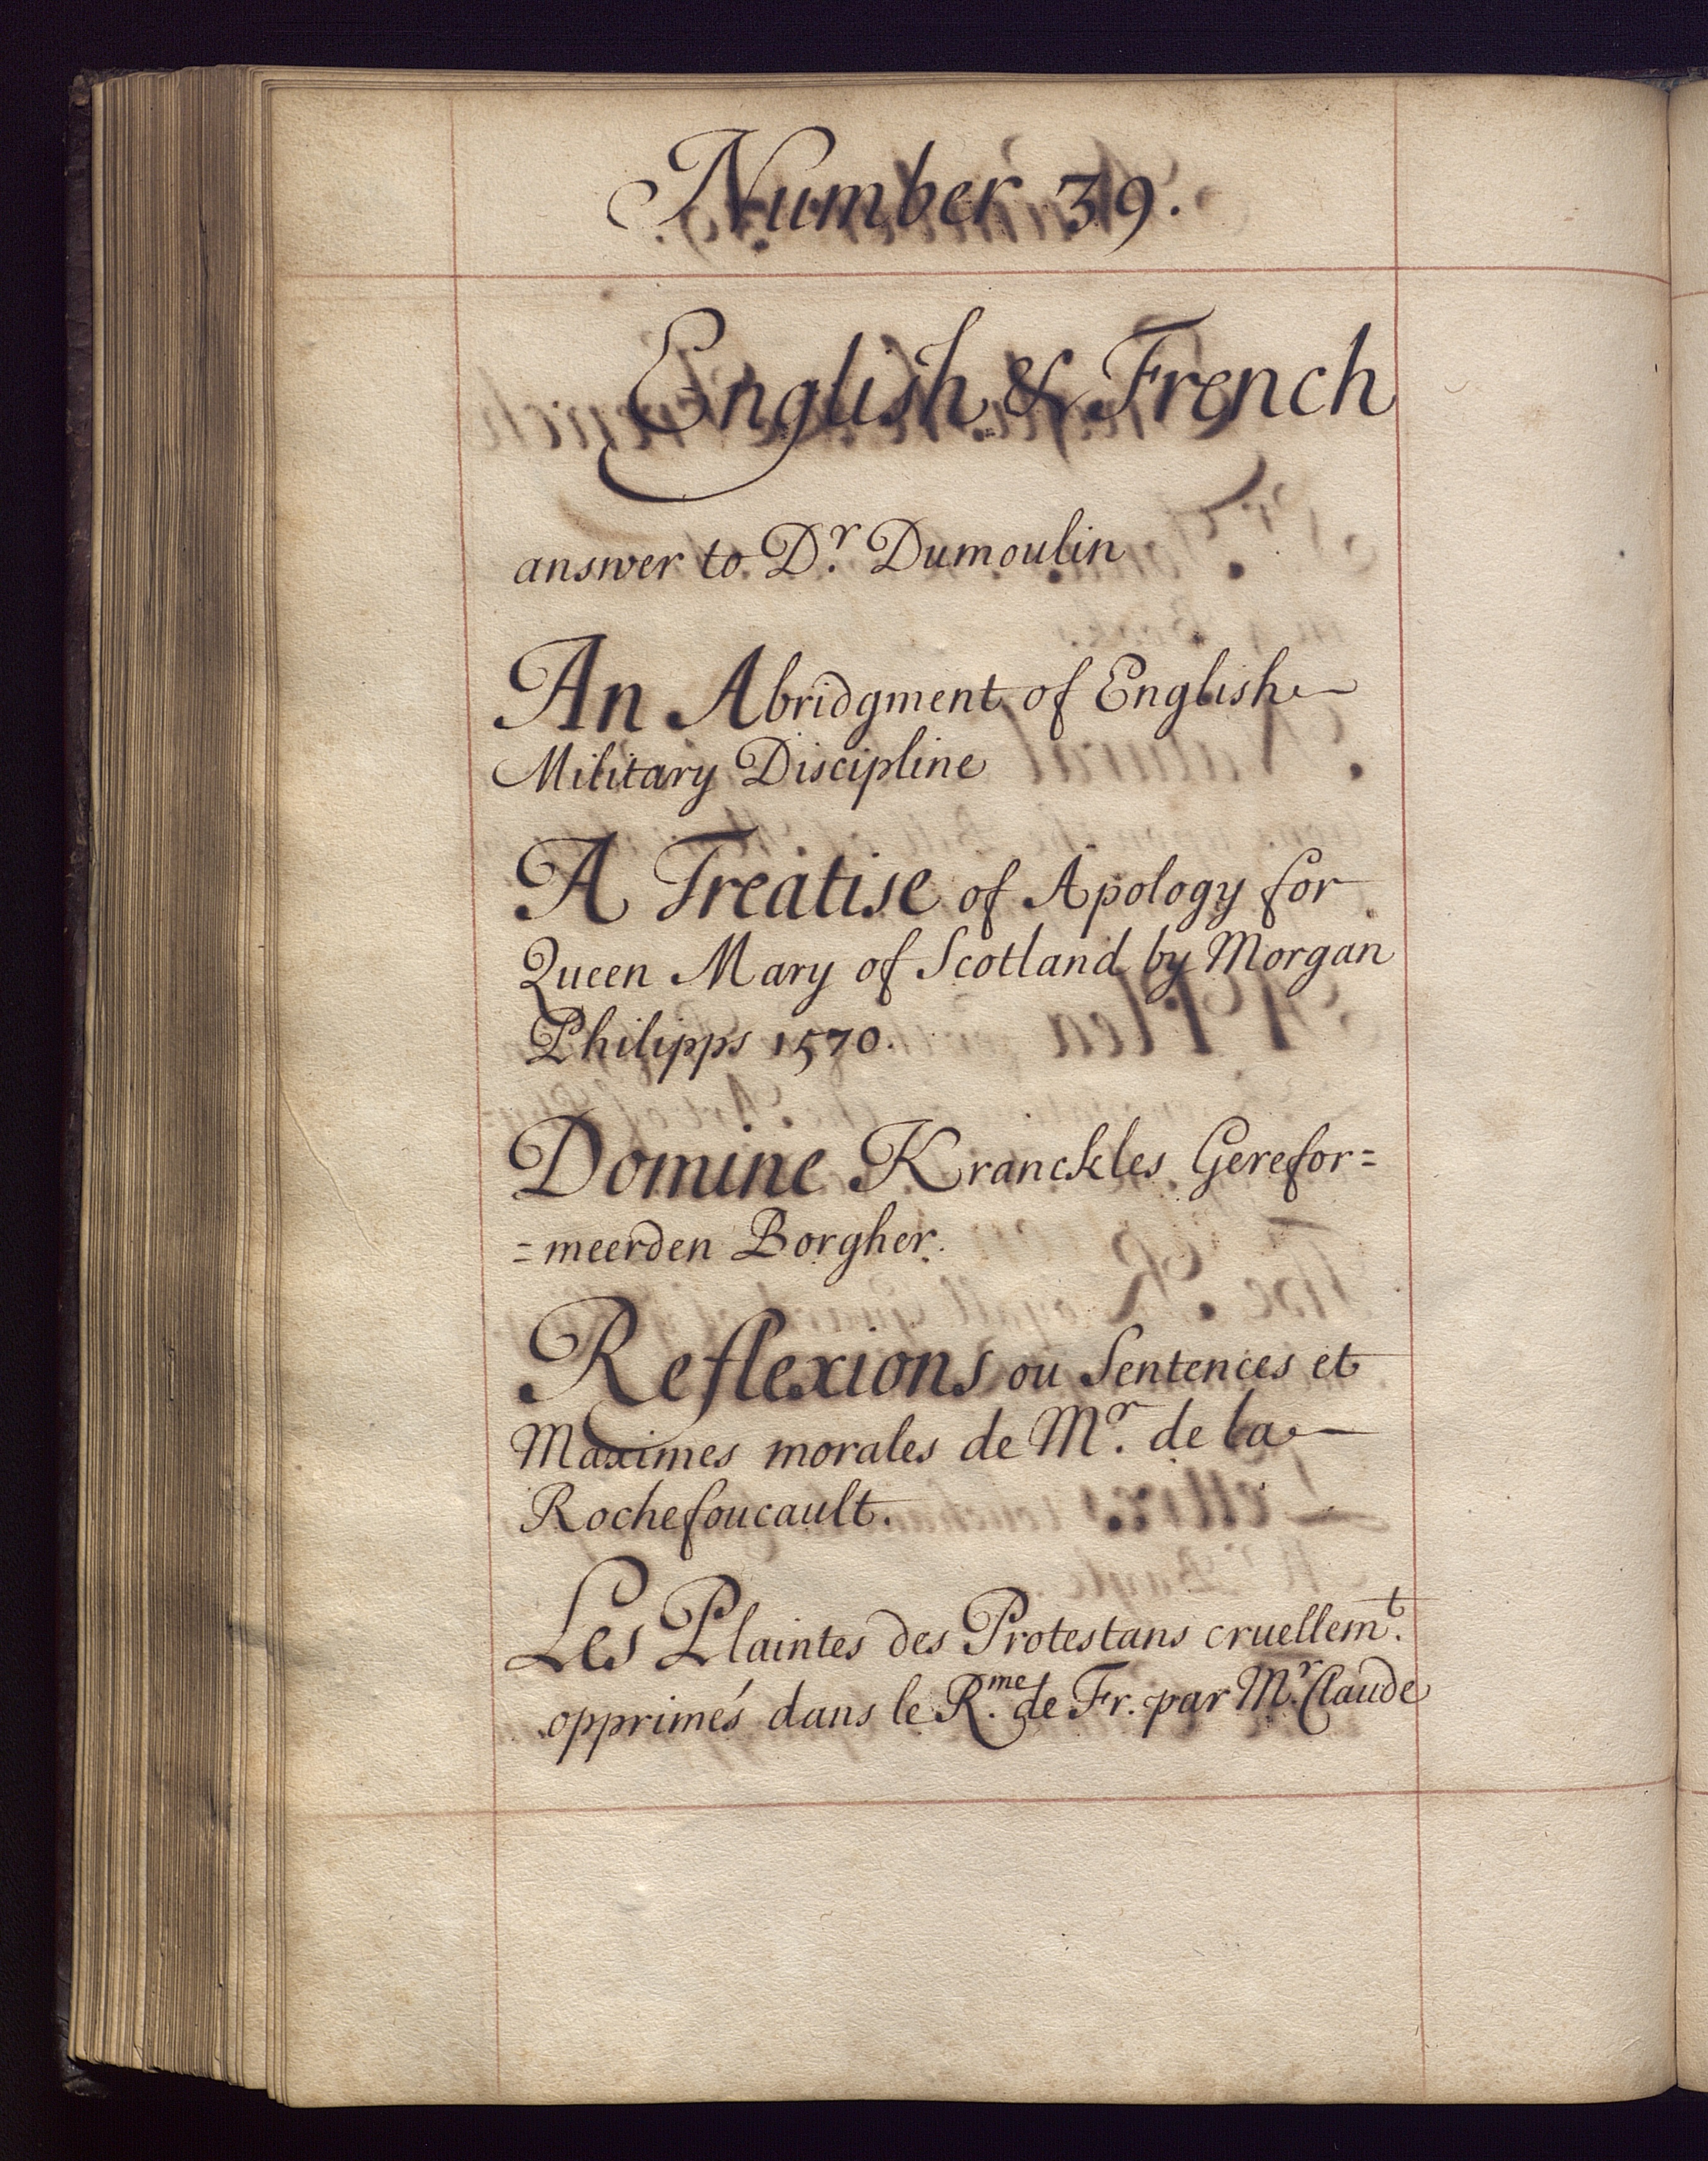 Number 39.
English & French
answer to Dr. Dumoulin
An Abridgment of English
Military Discipline
A Treatise of Apology for
Queen Mary of Scotland by Morgan
Philipps 1570.
Domine Kranckles Gerefor=
=meerden Borgher.
Reflexions ou Sentences et
Maximes morales de Mr. de la
Rochefoucault.
Les Plaintes des Protestans cruellemt.
opprimés dans le R.me de Fr. par Mr. Claude